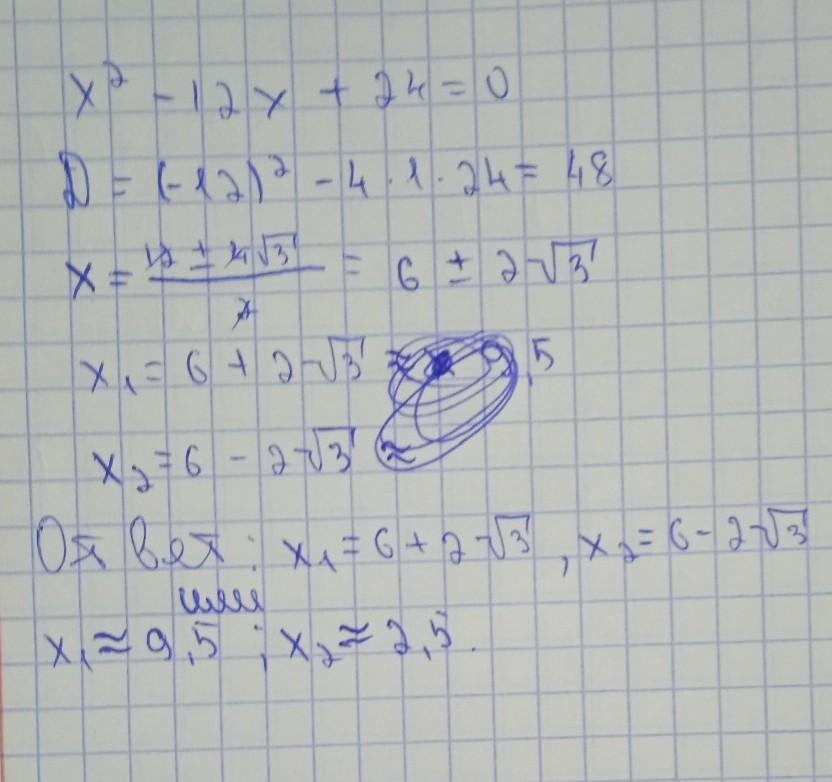 x² - 12x + 24 = 0
D = (-12)² - 4 · 1 · 24 = 48
x = (12 ± 4√3)/2 = 6 ± 2√3
x₁ = 6 + 2√3 ≈ ,5
x₂ = 6 - 2√3 ≈
Ответ: x₁ = 6 + 2√3, x₂ = 6 - 2√3
или
x₁ ≈ 9,5; x₂ ≈ 2,5.